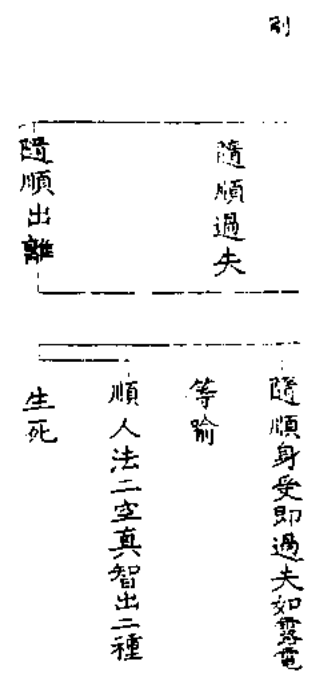 別
隨順過失
隨順出離
隨順身受即過失如露電
等喻
順人法二空真智出二種
生死